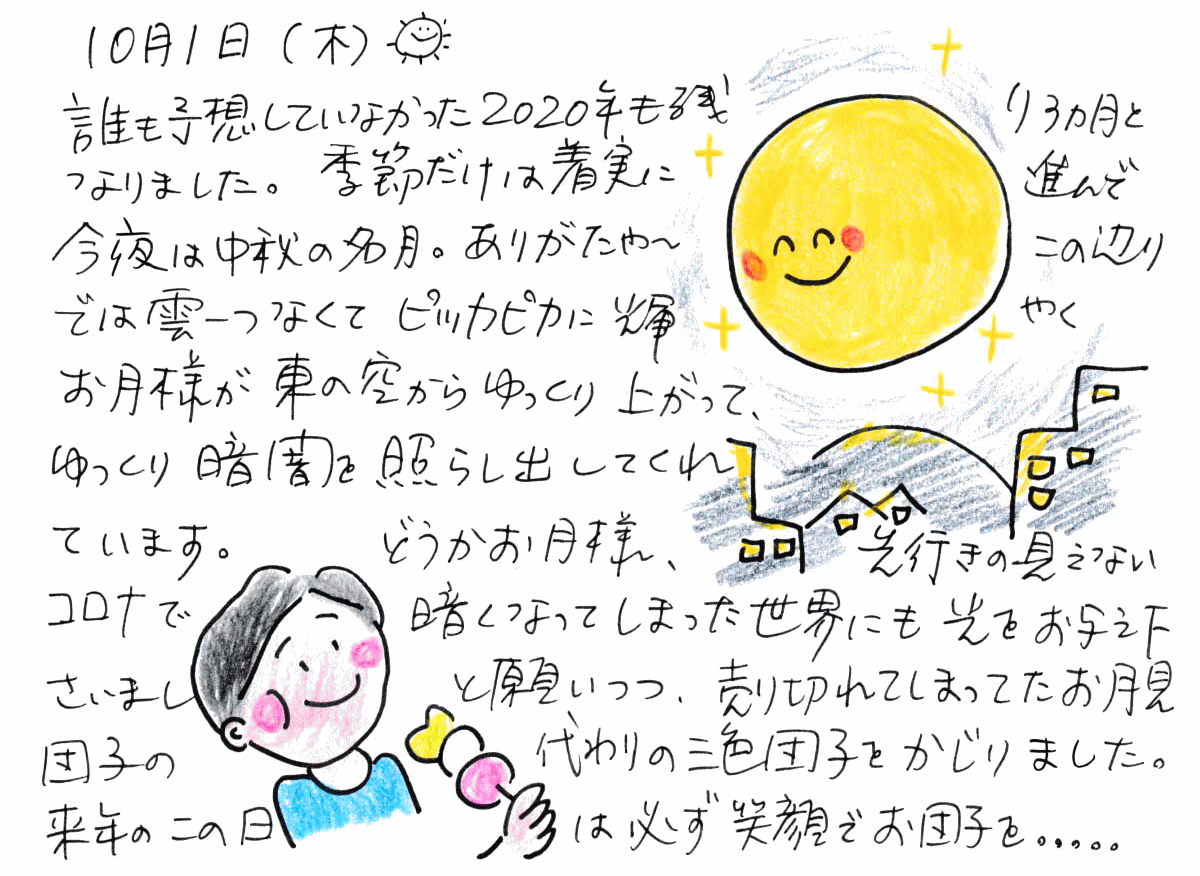 10月1日(木)
誰も予想していなかった2020年も残り3ヵ月と
なりました。 季節だけは着実に進んで
今夜は中秋の名月。ありがたや〜この辺り
では雲一つなくて ピッカピカに輝やく
お月様が 東の空から ゆっくり 上がって、
ゆっくり 暗闇を 照らし出してくれ
ています。 どうかお月様、 先行きの見えない
コロナで暗くなってしまった世界にも 光をお与え下
さいましと願いつつ、売り切れてしまってたお月見
団子の代わりの三色団子をかじりました。
来年のこの日は必ず笑顔でお団子を。。。。。